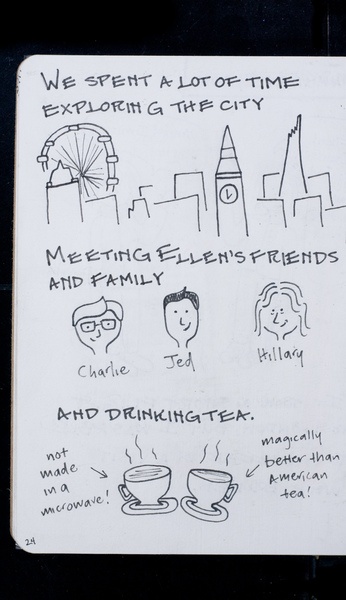 WE SPENT A LOT OF TIME
EXPLORING THE CITY
MEETING ELLEN'S FRIENDS
AND FAMILY
Charlie
Jed
Hillary
AND DRINKING TEA.
not
made
in a
microwave!
magically
better than
American
tea!
24